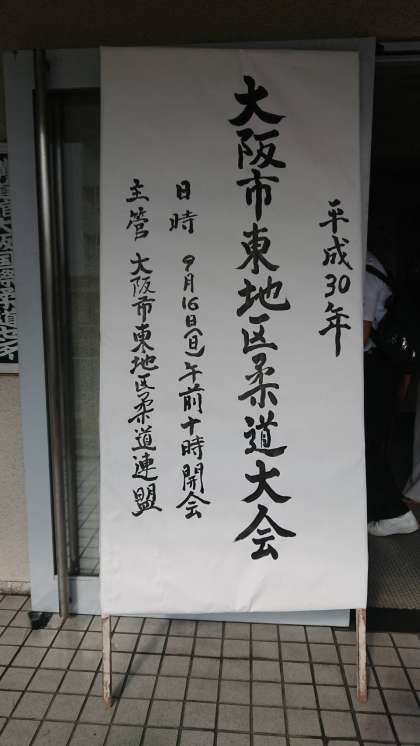 平成30年
大阪市東地区柔道大会
日時 9月16日(日)午前十時開会
主管 大阪市東地区柔道連盟